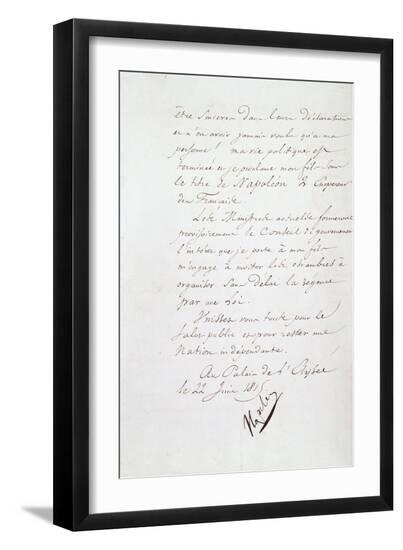 être Sincères dans leurs déclarations
et n'en avoir jamais voulu qu'à ma
personne! ma vie politique est
terminée et je proclame mon fils sous
le titre de Napoléon 2 Empereur
des Français.
Les Ministres actuels formeront
provisoirement le Conseil de gouvernement
l'intérêt que je porte à mon fils
m'engage à inviter les chambres à
organiser sans delai la régence
par une loi.
Unissez vous tous pour le
Salut public et pour rester une
Nation indépendante.
Au Palais de l'Elysée
le 22 Juin 1815